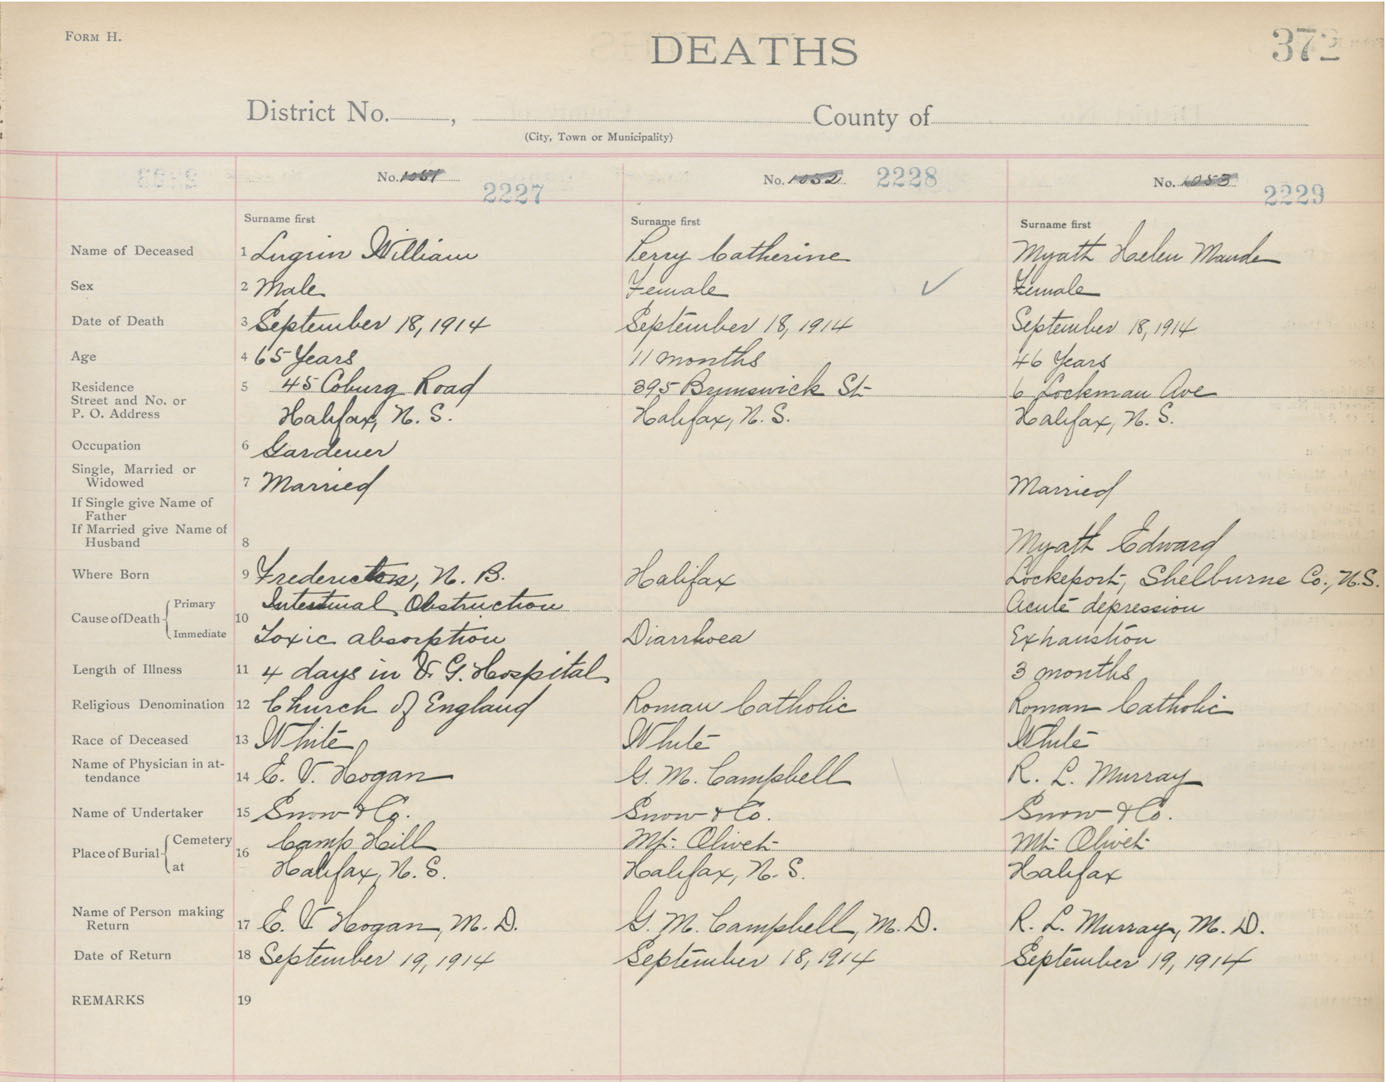 FORM H.
DEATHS
372
District No. , County of
(City, Town or Municipality)
No. 1051 2227 No. 1052 2228 No. 1053 2229
Surname first Surname first Surname first
Name of Deceased 1 Lugrin William Perry Catherine Myath Helen Maude
Sex 2 Male Female Female
Date of Death 3 September 18, 1914 September 18, 1914 September 18, 1914
Age 4 65 Years 11 months 46 Years
Residence 5 45 Coburg Road 395 Brunswick St 6 Lockman Ave
Street and No. or
P. O. Address Halifax, N. S. Halifax, N. S. Halifax, N. S.
Occupation 6 Gardener
Single, Married or
Widowed 7 Married Married
If Single give Name of
Father
If Married give Name of
Husband 8 Myath Edward
Where Born 9 Fredericton, N. B. Halifax Lockeport, Shelburne Co., N.S.
Cause of Death Primary 10 Intestinal Obstruction Acute depression
Immediate Toxic absorption Diarrhoea Exhaustion
Length of Illness 11 4 days in V. G. Hospital 3 months
Religious Denomination 12 Church of England Roman Catholic Roman Catholic
Race of Deceased 13 White White White
Name of Physician in at-
tendance 14 E. V. Hogan G. M. Campbell R. L. Murray
Name of Undertaker 15 Snow & Co. Snow & Co. Snow & Co.
Place of Burial Cemetery 16 Camp Hill Mt. Olivet Mt. Olivet
at Halifax, N. S. Halifax, N. S. Halifax
Name of Person making
Return 17 E. V. Hogan, M. D. G. M. Campbell, M. D. R. L. Murray, M. D.
Date of Return 18 September 19, 1914 September 18, 1914 September 19, 1914
REMARKS 19